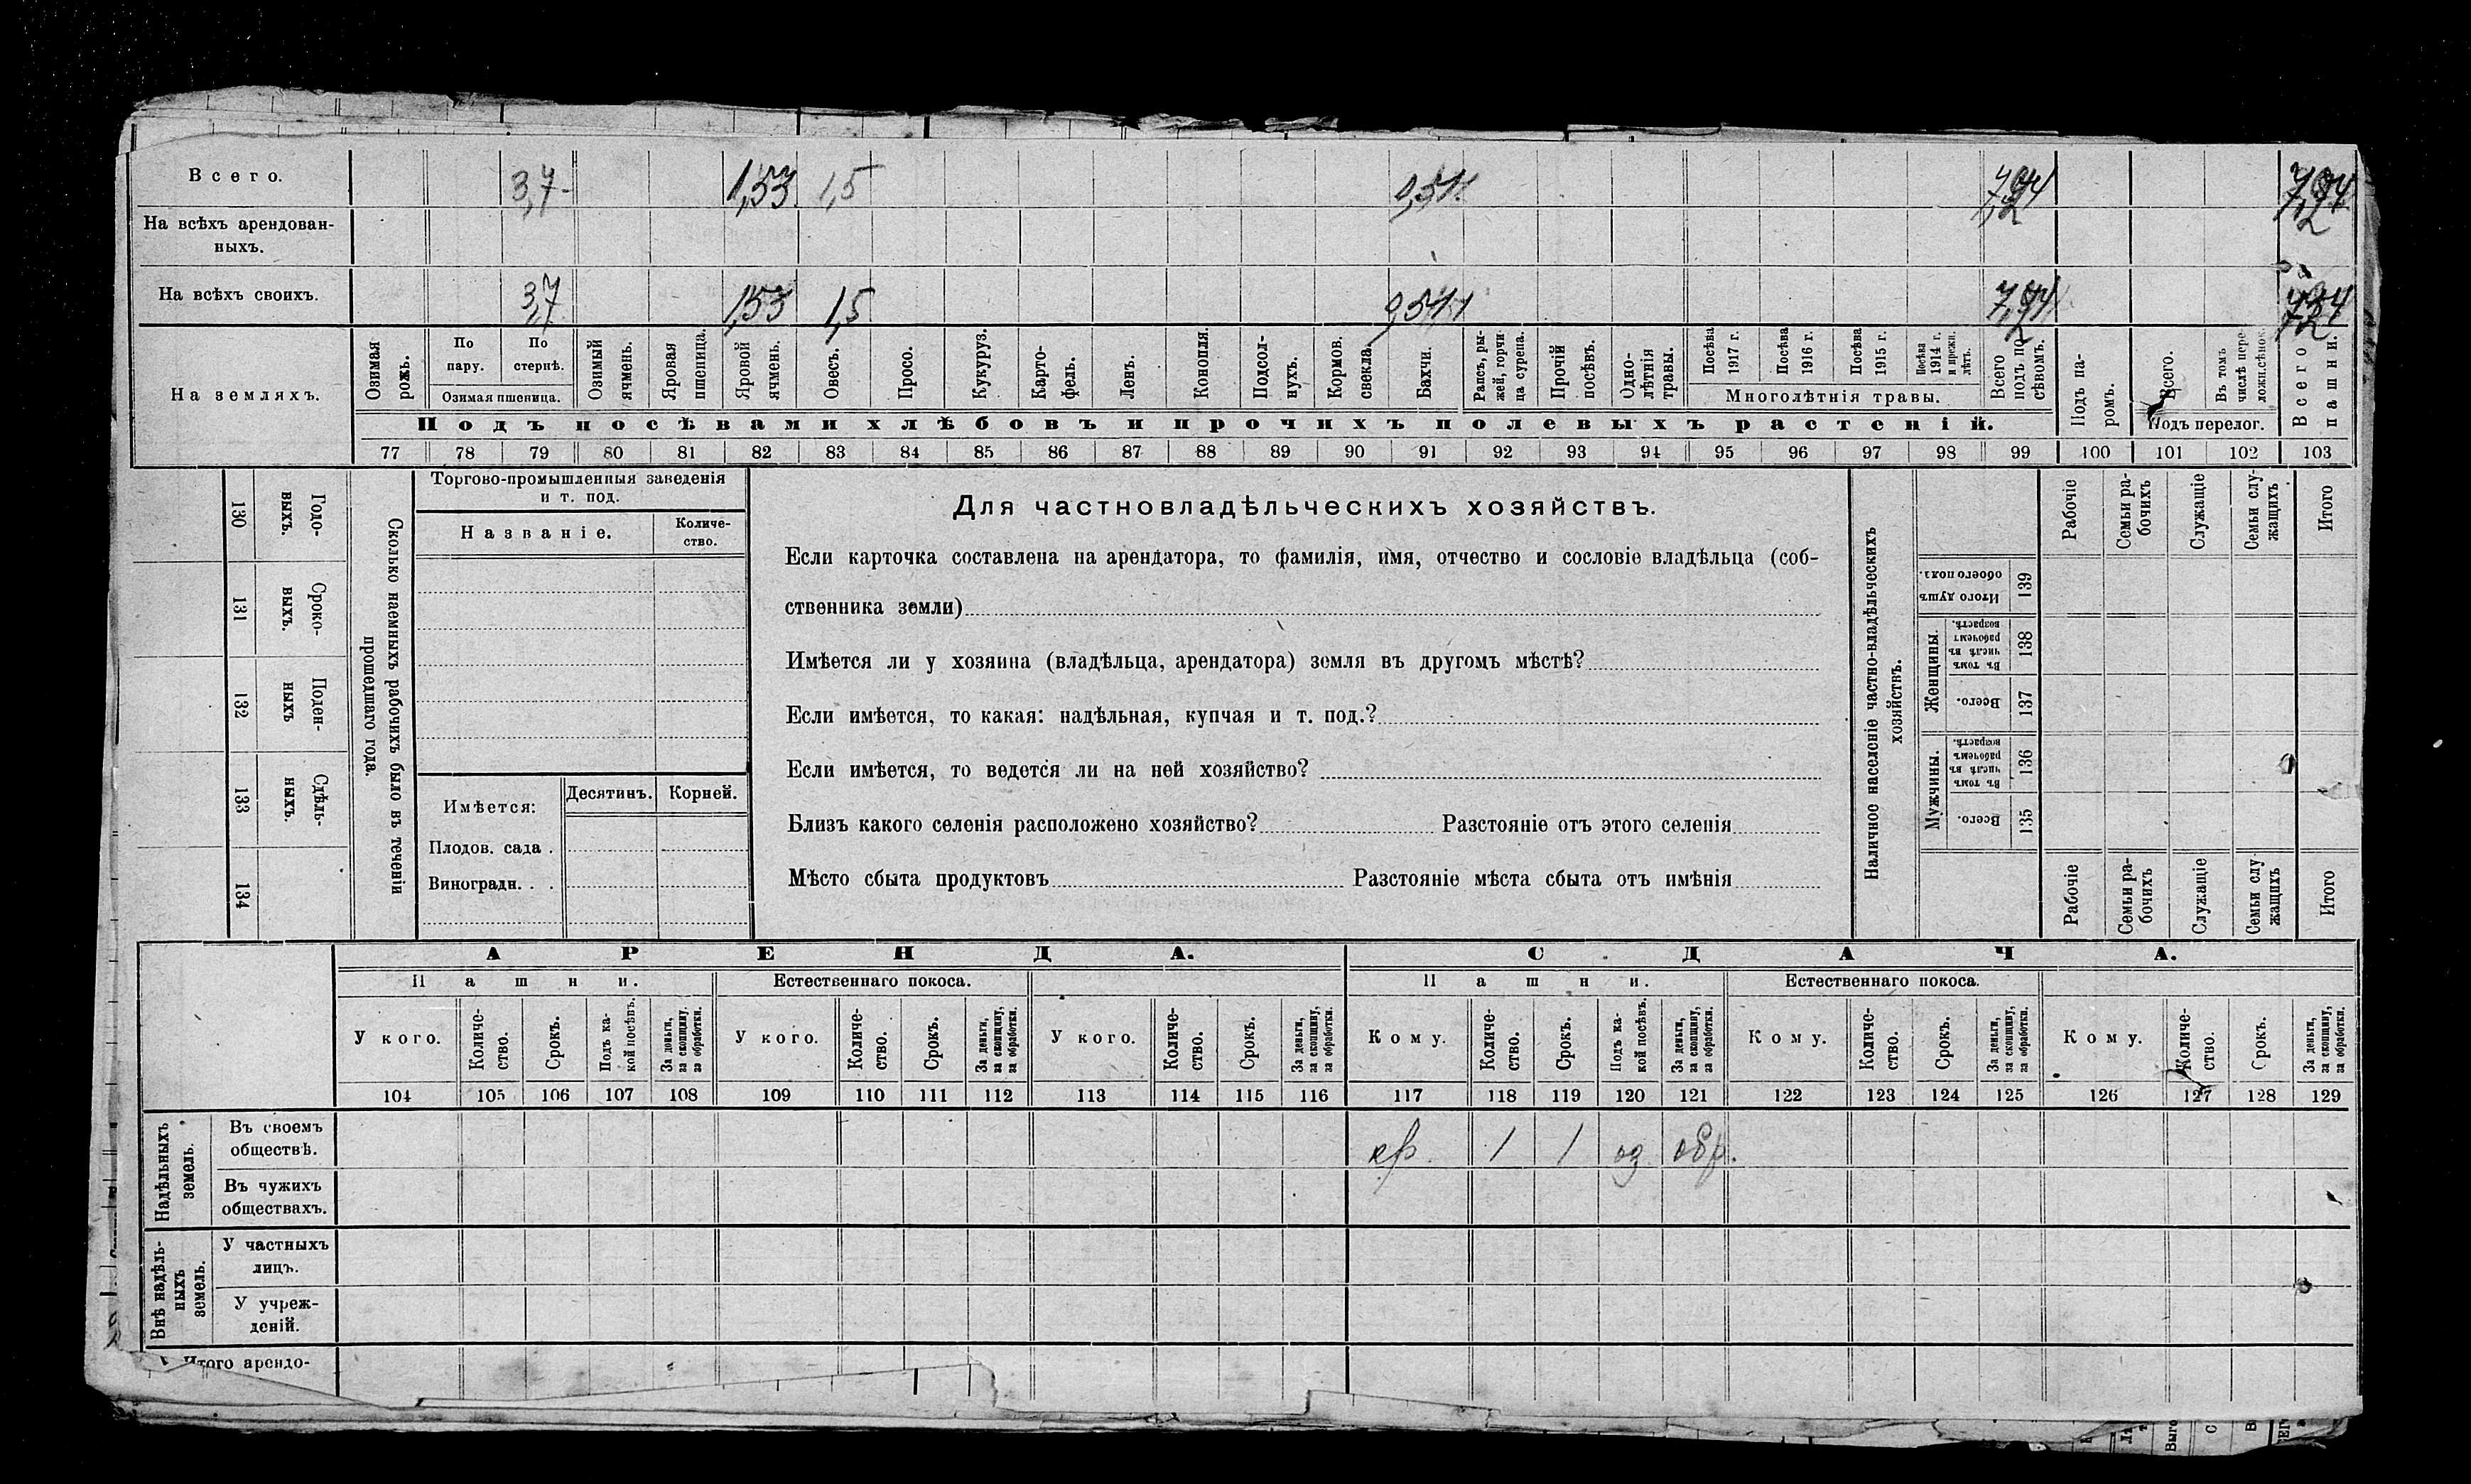 Всего. 3,7 1,53 1,5 0,51
На всѣхъ арендован-
ныхъ.
На всѣхъ своихъ. 3,7 1,53 1,5 0,51
На земляхъ.
Озимая рожь.
По пару.
По стернѣ.
Озимая пшеница.
Озимый ячмень.
Яровая пшеница.
Яровой ячмень.
Овесъ.
Просо.
Кукуруз.
Карто-
фель.
Ленъ.
Конопля.
Подсол-
нухъ.
Кормов.
свекла.
Бахчи.
Рапсъ, ры-
жей, горчи
ца сурепа.
Прочій
посѣвъ.
Одно-
лѣтнія
травы.
Посѣва
1917 г.
Посѣва
1916 г.
Посѣва
1915 г.
Посѣва
1914 г.
и прежн.
лѣтъ.
Многолѣтнія травы.
Всего
подъ по
сѣвомъ.
Подъ па-
ромъ.
Всего.
Въ томъ
числѣ пере
ложн.сѣнок.
Подъ перелог.
Всего
пашни.
Подъ посѣвами хлѣбовъ и прочихъ полевыхъ растеній.
77 78 79 80 81 82 83 84 85 86 87 88 89 90 91 92 93 94 95 96 97 98 99 100 101 102 103
130 Годо-
выхъ.
131 Сроко-
выхъ.
132 Поден-
ныхъ
133 Сдѣль-
ныхъ.
134
Сколько наемныхъ рабочихъ было въ теченіи
прошедшаго года.
Торгово-промышленныя заведенія
и т. под.
Названіе. Количе-
ство.
Имѣется: Десятинъ. Корней.
Плодов. сада .
Виноградн. . .
Для частновладѣльческихъ хозяйствъ.
Если карточка составлена на арендатора, то фамилія, имя, отчество и сословіе владѣльца (соб-
ственника земли)
Имѣется ли у хозяина (владѣльца, арендатора) земля въ другомъ мѣстѣ?
Если имѣется, то какая: надѣльная, купчая и т. под.?
Если имѣется, то ведется ли на ней хозяйство?
Близъ какого селенія расположено хозяйство? Разстояніе отъ этого селенія
Мѣсто сбыта продуктовъ Разстояніе мѣста сбыта отъ имѣнія
Наличное населеніе частно-владѣльческихъ
хозяйствъ.
Рабочіе
Семьи ра-
бочихъ
Служащіе
Семьи слу-
жащихъ
Итого
Итого душъ
обоего пола. 139
Женщины.
Въ томъ
числѣ въ
рабочемъ
возрастѣ. 138
Всего. 137
Мужчины.
Въ томъ
числѣ въ
рабочемъ
возрастѣ. 136
Всего. 135
Рабочіе
Семьи ра-
бочихъ
Служащіе
Семьи слу-
жащихъ
Итого
АРЕНДА. СДАЧА.
Пашни. Естественнаго покоса. Пашни. Естественнаго покоса.
У кого.
Количе-
ство.
Срокъ.
Подъ ка-
кой посѣвъ.
За деньги,
за скопщину,
за обработки.
У кого.
Количе-
ство.
Срокъ.
За деньги,
за скопщину,
за обработки.
У кого.
Количе-
ство.
Срокъ.
За деньги,
за скопщину,
за обработки.
Кому.
Количе-
ство.
Срокъ.
Подъ ка-
кой посѣвъ.
За деньги,
за скопщину,
за обработки.
Кому.
Количе-
ство.
Срокъ.
За деньги,
за скопщину,
за обработки.
Кому.
Количе-
ство.
Срокъ.
За деньги,
за скопщину,
за обработки.
104 105 106 107 108 109 110 111 112 113 114 115 116 117 118 119 120 121 122 123 124 125 126 127 128 129
Надѣльныхъ
земель.
Въ своемъ
обществѣ. кр. 1 1 оз обр.
Въ чужихъ
обществахъ.
Внѣ надѣль-
ныхъ
земель.
У частныхъ
лицъ.
У учреж-
деній.
Итого арендо-